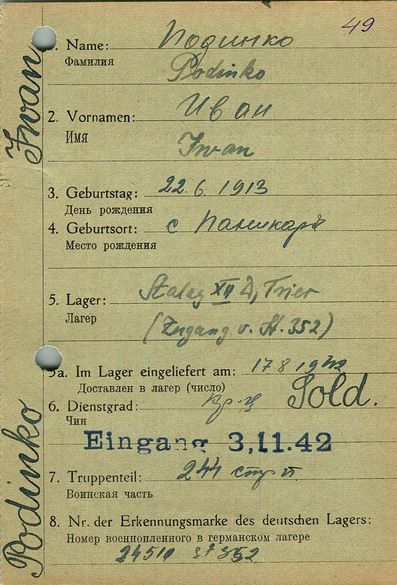 49
1. Name: Подинко
Фамилия Podinko
2. Vornamen: Иван
Имя Iwan
3. Geburtstag: 22.6.1913
День рождения
4. Geburtsort: с Паникары
Место рождения
5. Lager: Stalag XII D, Trier
Лагер (Zugang v. St. 352)
5a. Im Lager eingeliefert am: 17 8 1942
Доставлен в лагер (число)
6. Dienstgrad: кр-ц Sold.
Чин
Eingang 3.11.42
7. Truppenteil: 244 стр п
Воинская часть
8. Nr. der Erkennungsmarke des deutschen Lagers:
Номер военнопленного в германском лагере
24510 St 352
Podinko Iwan